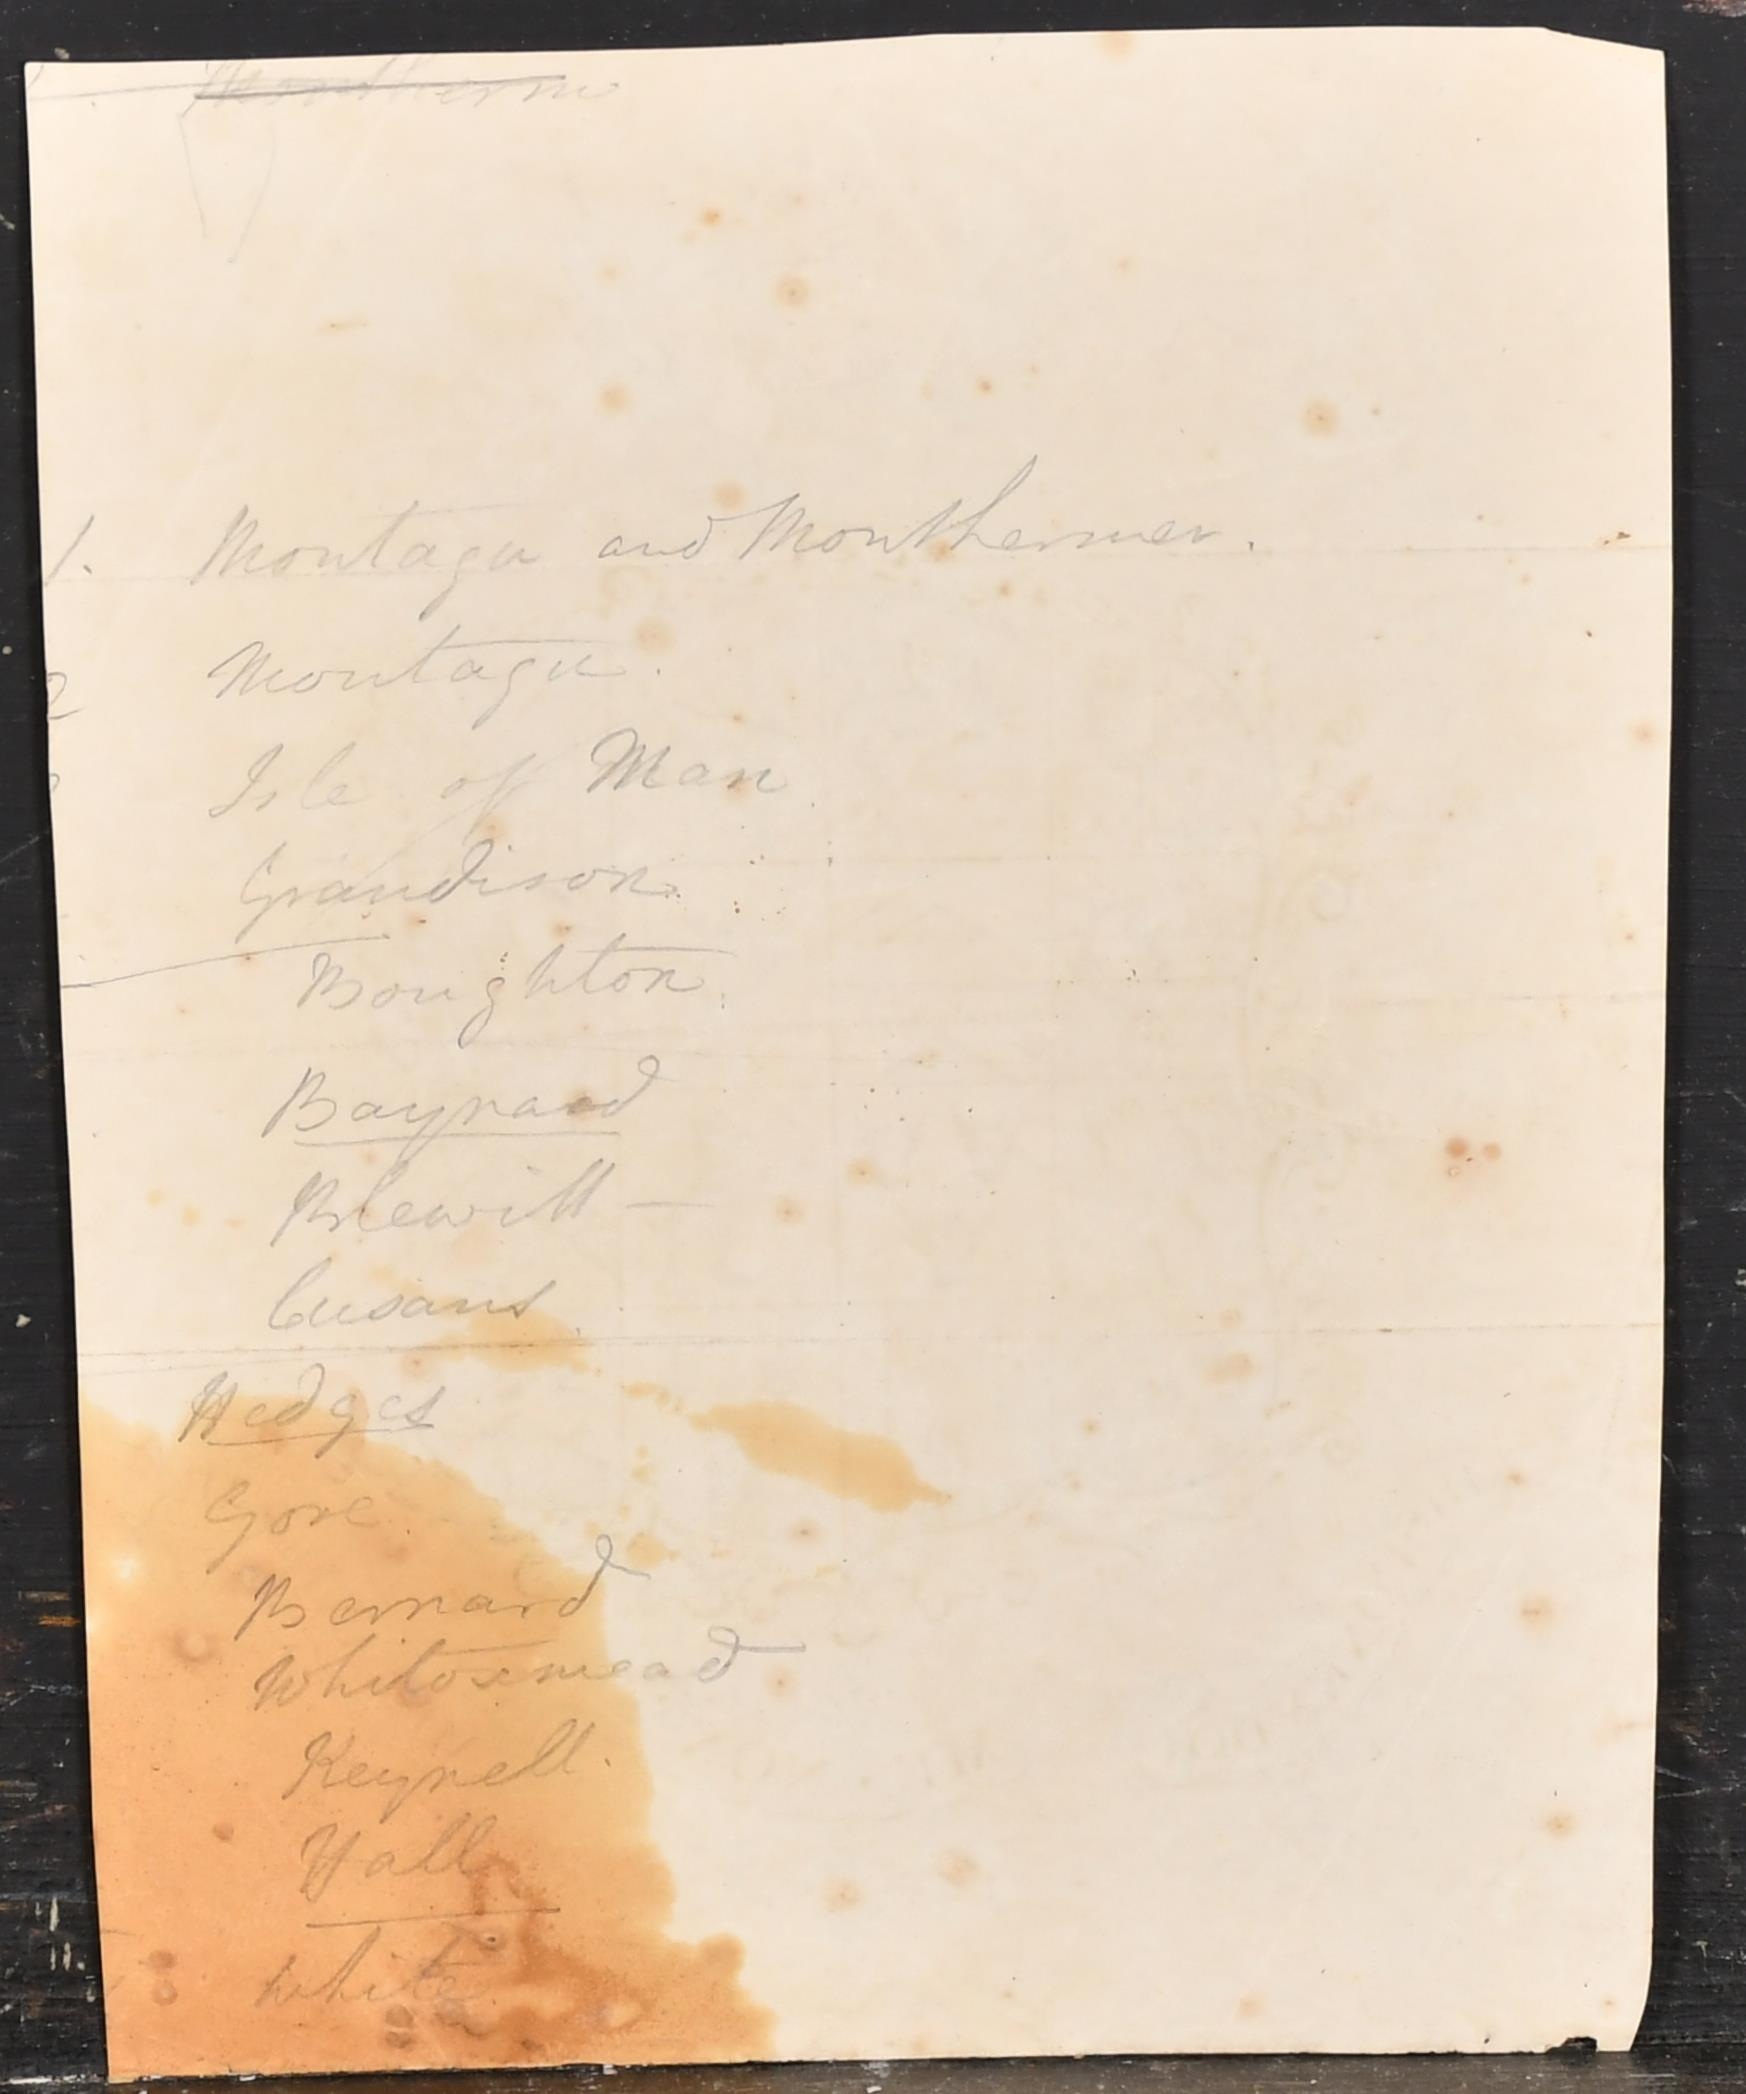 1. Montagu and Monthermer.
2 Montagu.
Isle of Man.
Grandison.
Boughton.
Baynard
Blewitt —
Cusans.
Hedges
Gore.
Bernard
Whitoxmead
Keynell.
Hall
White.